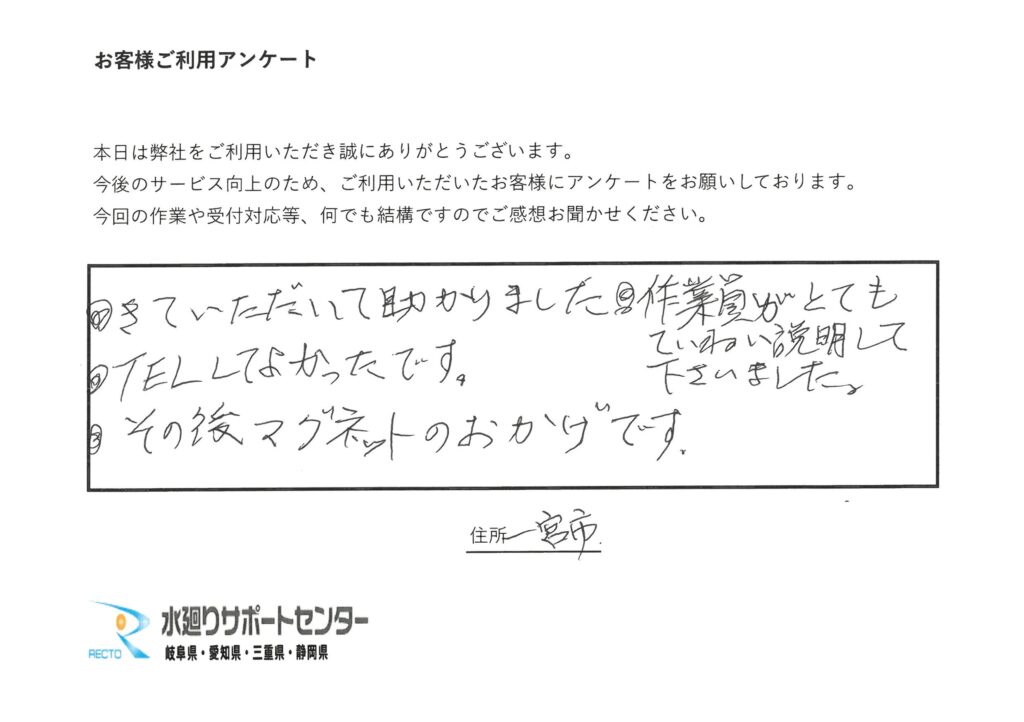 お客様ご利用アンケート
本日は弊社をご利用いただき誠にありがとうございます。
今後のサービス向上のため、ご利用いただいたお客様にアンケートをお願いしております。
今回の作業や受付対応等、何でも結構ですのでご感想お聞かせください。
きていただいて助かりました
TELしてよかったです。
その後マグネットのおかげです.
作業員がとても
ていねい説明して
下さいました。
住所 一宮市
RECTO
水廻りサポートセンター
岐阜県・愛知県・三重県・静岡県